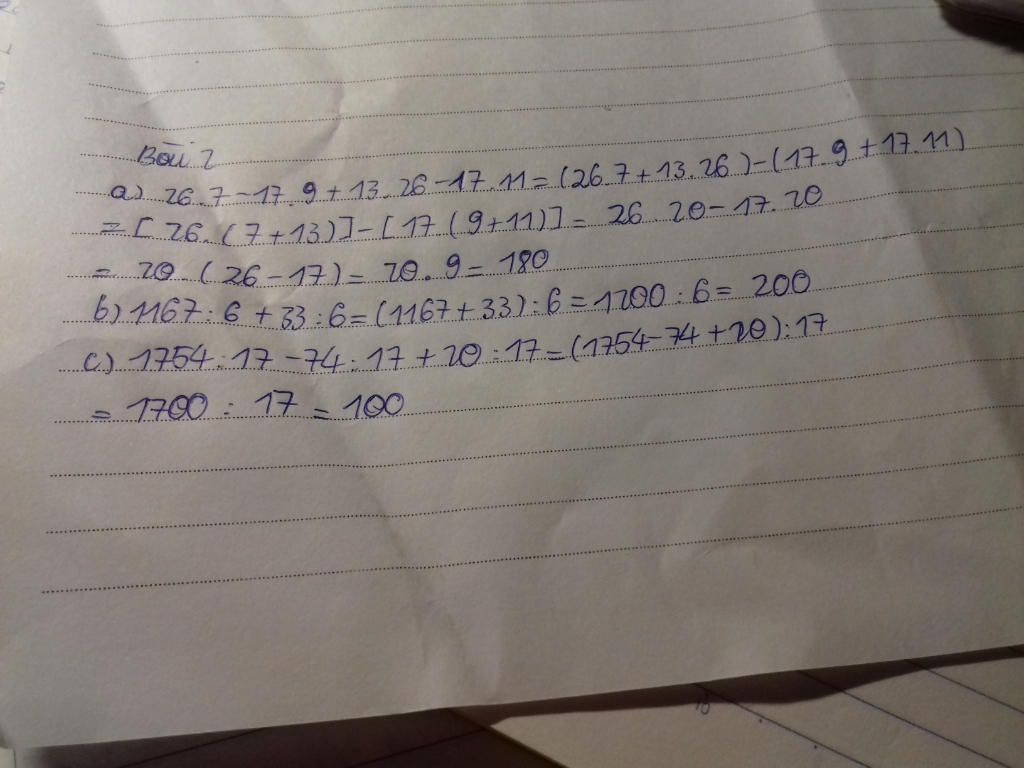 Bài 2
a) 26.7-17.9+13.26-17.11=(26.7+13.26)-(17.9+17.11)
=[26.(7+13)]-[17(9+11)]=26.20-17.20
=20.(26-17)=20.9=180
b) 1167:6+33:6=(1167+33):6=1200:6=200
c) 1754:17-74:17+20:17=(1754-74+20):17
=1700:17=100